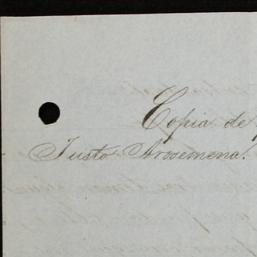 Copia de
Justo Arosemena.